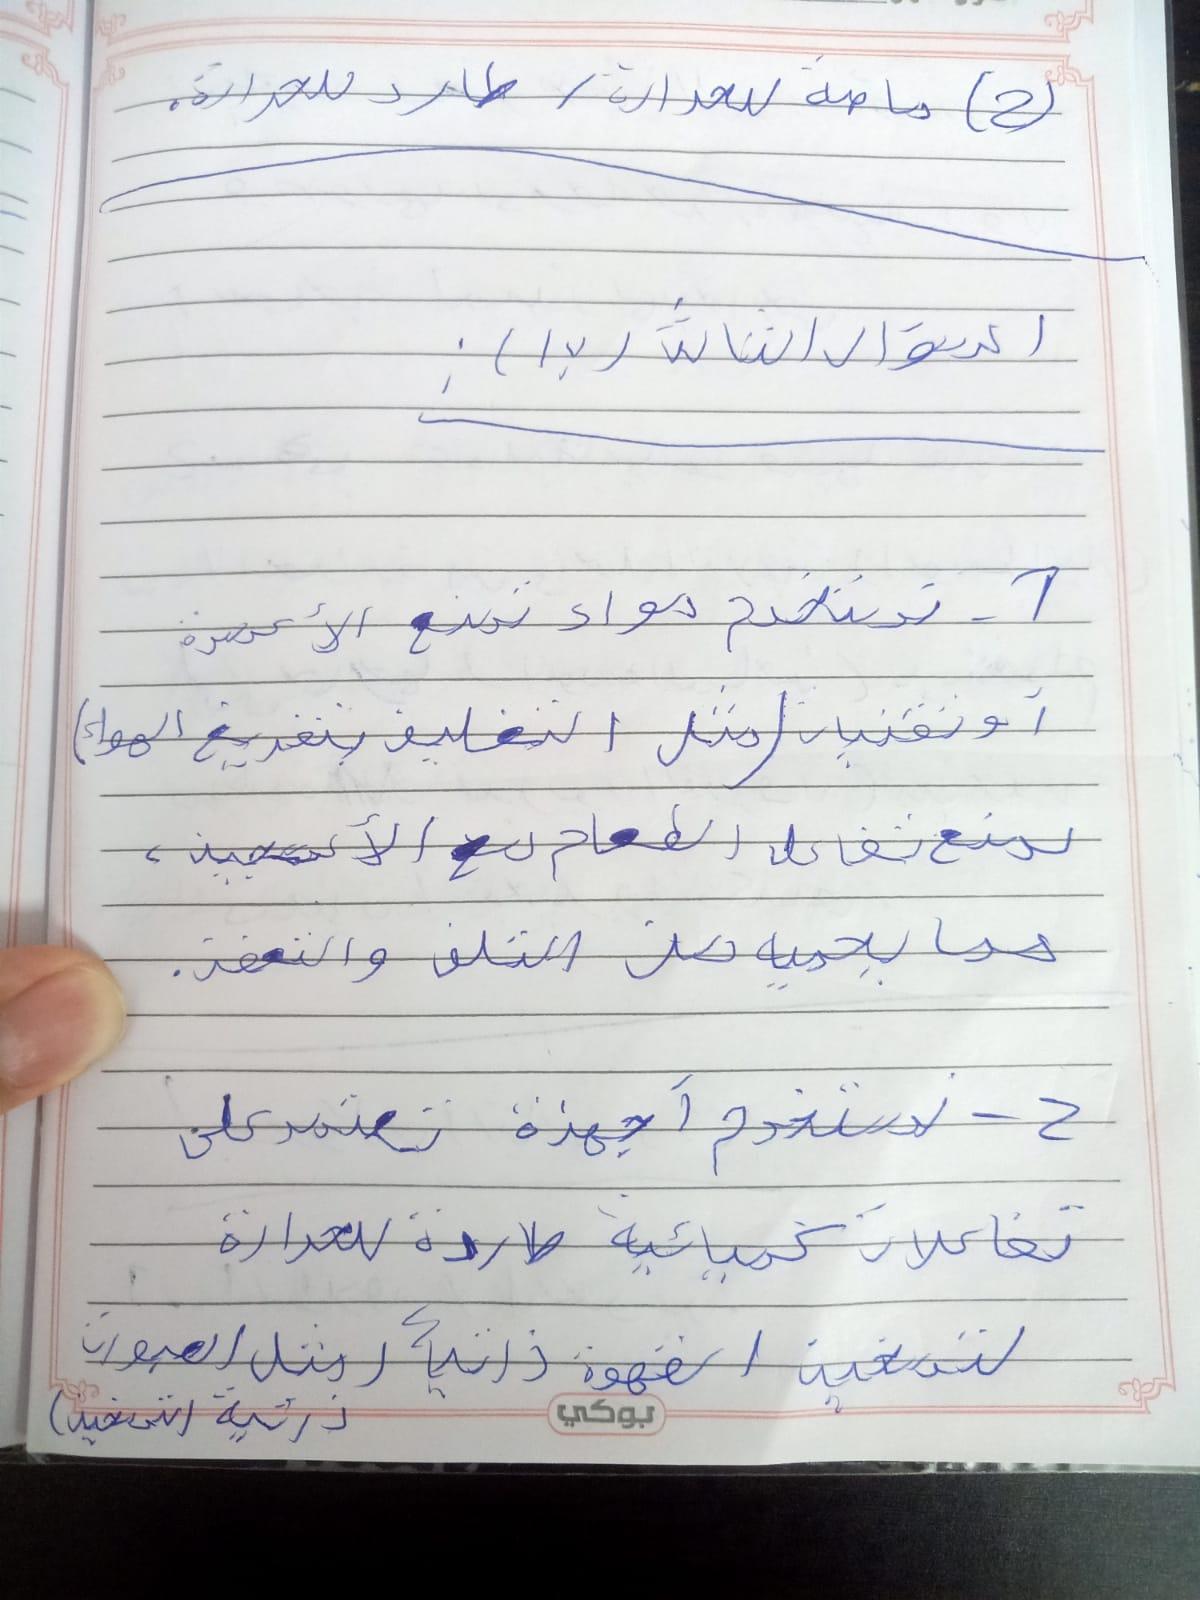 (ح) ماصة للحرارة / طارد للحرارة.
السؤال الثالث (١٧):
أ- تستخدم مواد تمنع الأكسدة
أو تقنيات (مثل التغليف بتفريغ الهواء)
لمنع تفاعل الطعام مع الأكسجين،
مما يحميه من التلف والتعفن.
ح- نستخدم أجهزة تعتمد على
تفاعلات كيميائية طاردة للحرارة
لتسخين القهوة ذاتياً (مثل العبوات
ذاتية التسخين)
بوكي